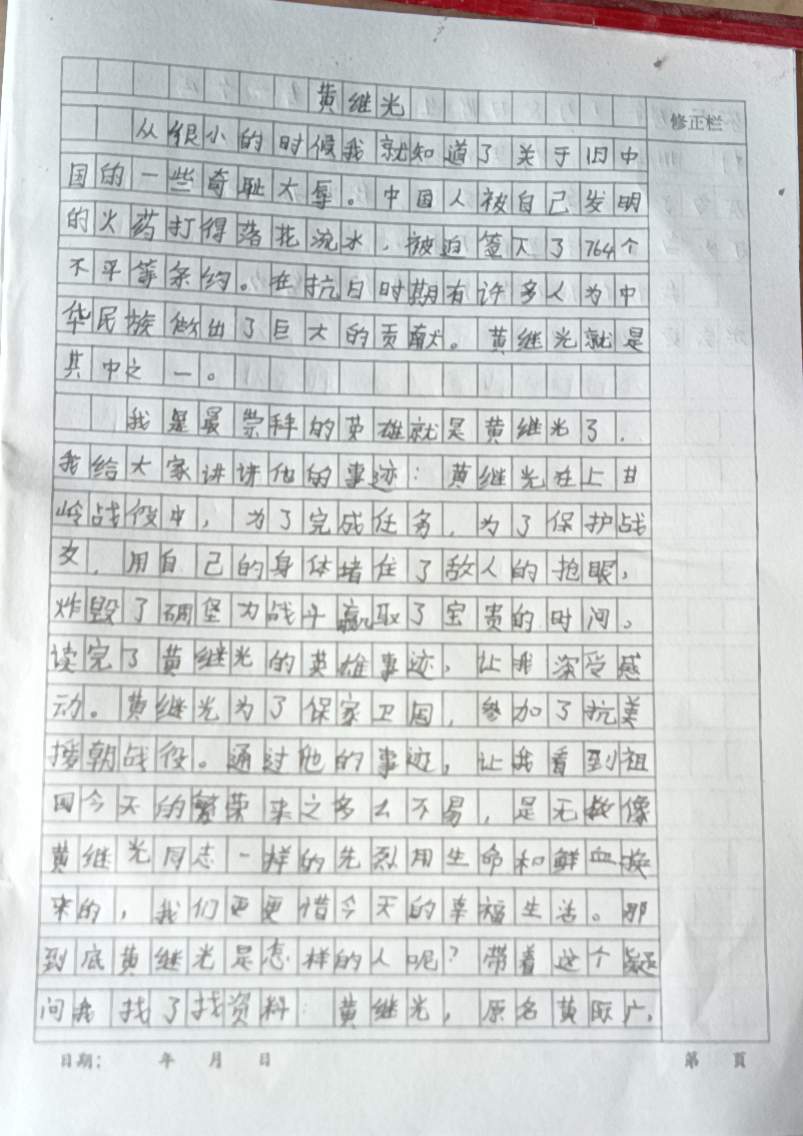 黄继光
修正栏
从很小的时候我就知道了关于旧中
国的一些奇耻大辱。中国人被自己发明
的火药打得落花流水,被迫签下了764个
不平等条约。在抗日时期有许多人为中
华民族做出了巨大的贡献。黄继光就是
其中之一。
我是最崇拜的英雄就是黄继光了.
我给大家讲讲他的事迹:黄继光在上甘
岭战役中,为了完成任务,为了保护战
友,用自己的身体堵住了敌人的抢眼,
炸毁了碉堡为战斗赢取了宝贵的时间。
读完了黄继光的英雄事迹,让我深受感
动。黄继光为了保家卫国,参加了抗美
援朝战役。通过他的事迹,让我看到祖
国今天的繁荣来之多么不易,是无数像
黄继光同志一样的先烈用生命和鲜血换
来的,我们更更惜今天的幸福生活。那
到底黄继光是怎样的人呢?带着这个疑
问我找了找资料:黄继光,原名黄际广,
日期: 年 月 日
第 页